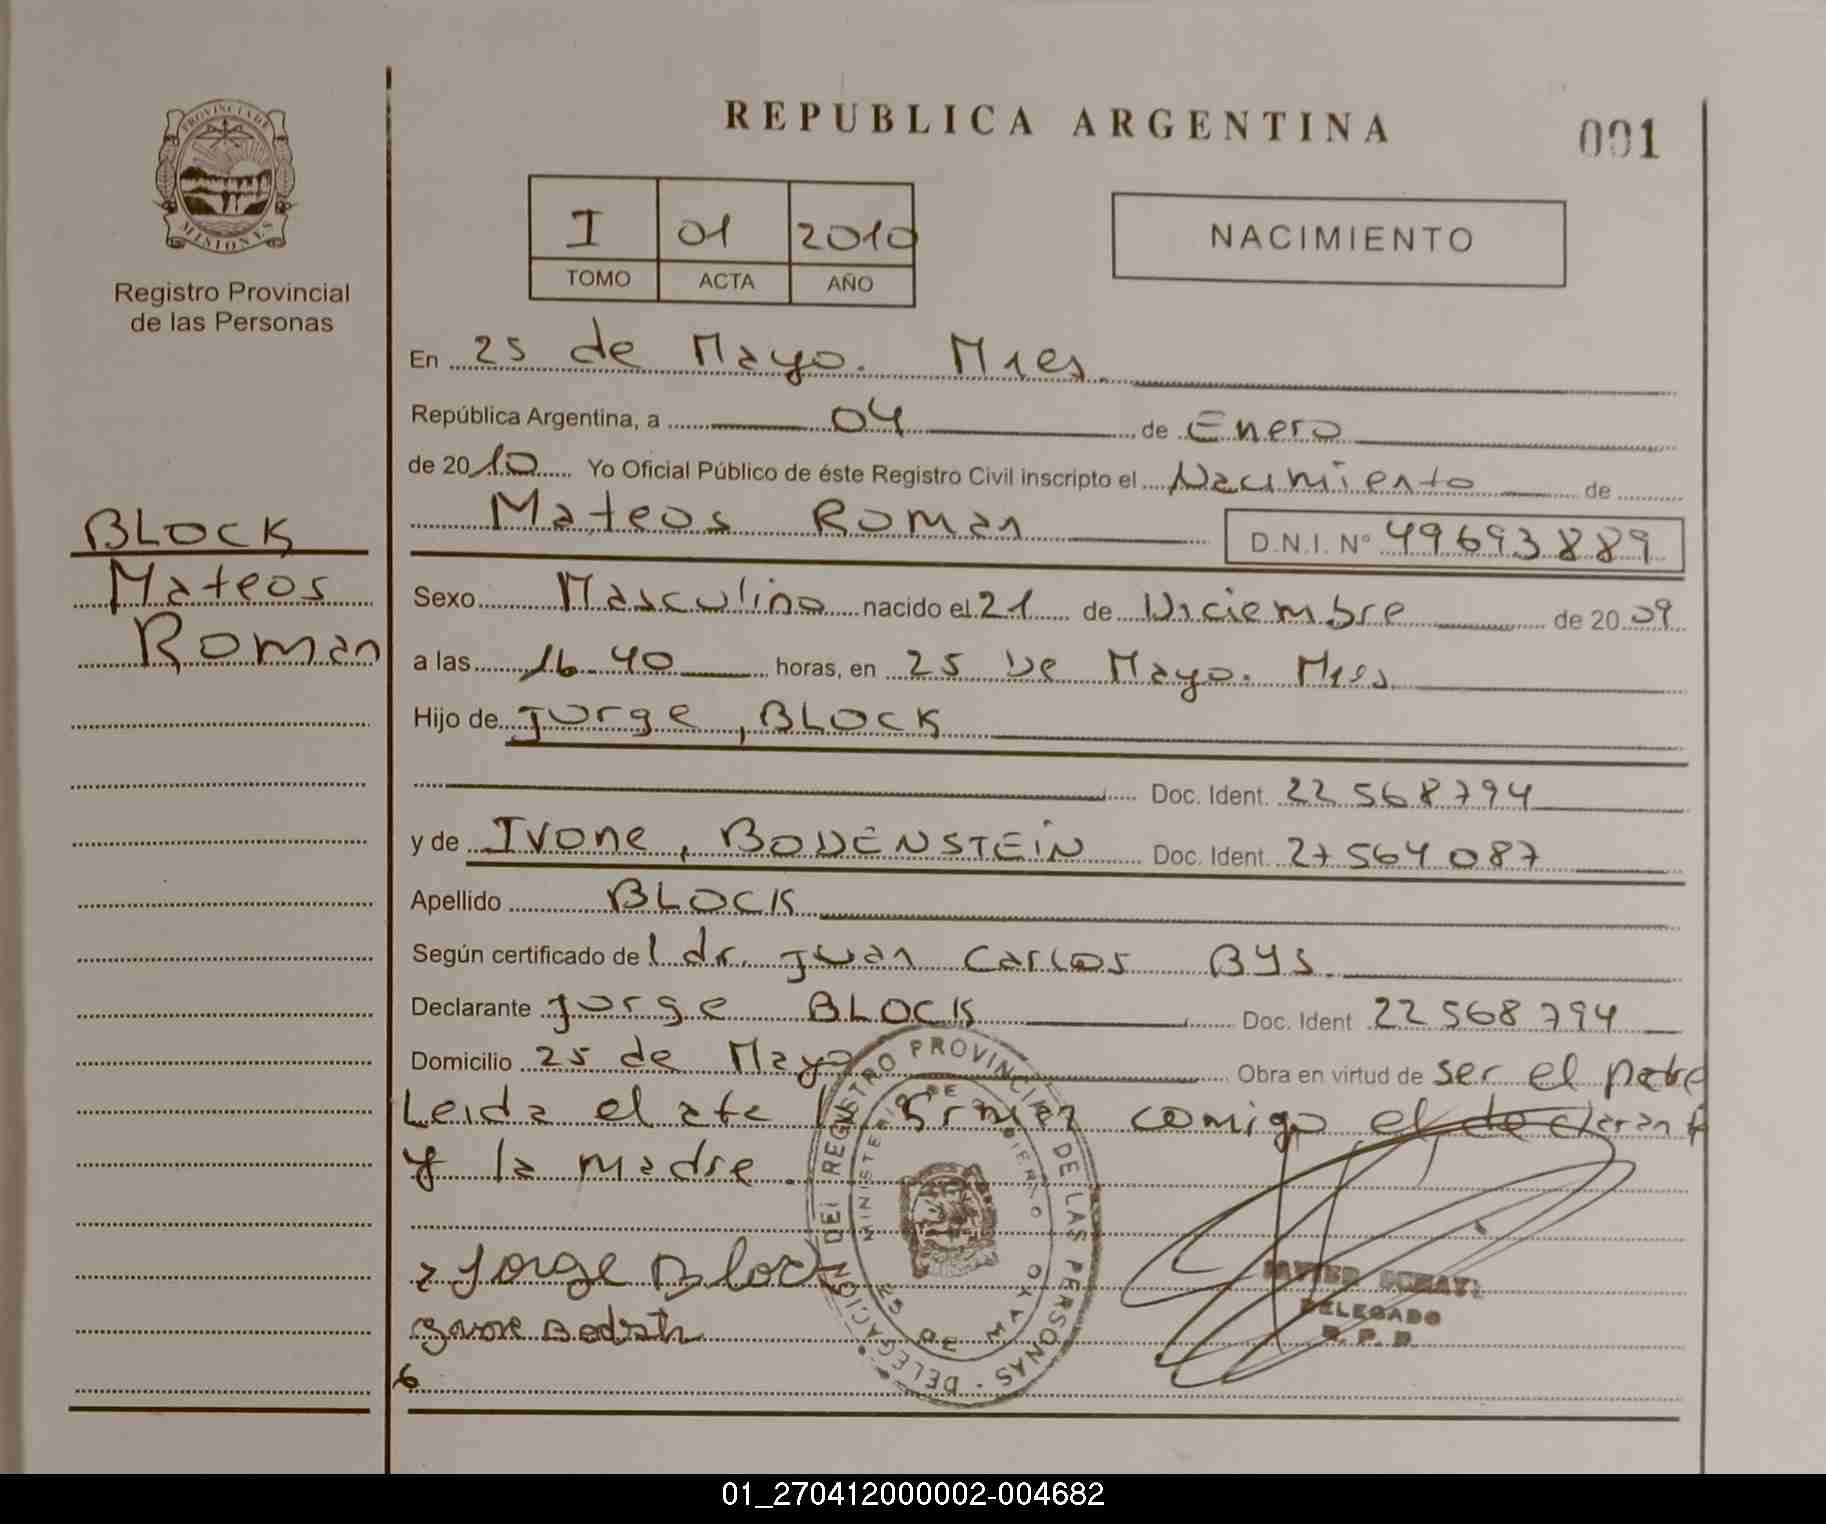 REPUBLICA ARGENTINA
001
PROVINCIA DE
MISIONES
Registro Provincial
de las Personas
I 01 2010
TOMO ACTA AÑO
NACIMIENTO
En 25 de Mayo. Mnes.
República Argentina, a 04 de Enero
de 2010 Yo Oficial Público de éste Registro Civil inscripto el Nacimiento de
Mateos Roman D.N.I. Nº 49693889
BLOCK
Mateos
Roman
Sexo Masculino nacido el 21 de Diciembre de 2009
a las 16 40 horas, en 25 De Mayo. Mnes
Hijo de Jorge, BLOCK
Doc. Ident. 22 568 794
y de Ivone, BODENSTEIN Doc. Ident. 27 564 087
Apellido BLOCK
Según certificado del dr. Juan Carlos BYS.
Declarante Jorge BLOCK Doc. Ident 22 568 794
Domicilio 25 de Mayo Obra en virtud de ser el padre
Leida el acta la firman comigo el declarante
y la madre.
Jorge Block
DELEGACIÓN DEL REGISTRO PROVINCIAL DE LAS PERSONAS
MINISTERIO DE GOBIERNO
25 DE MAYO
JAVIER
DELEGADO
R. P. P.
6
01_270412000002-004682